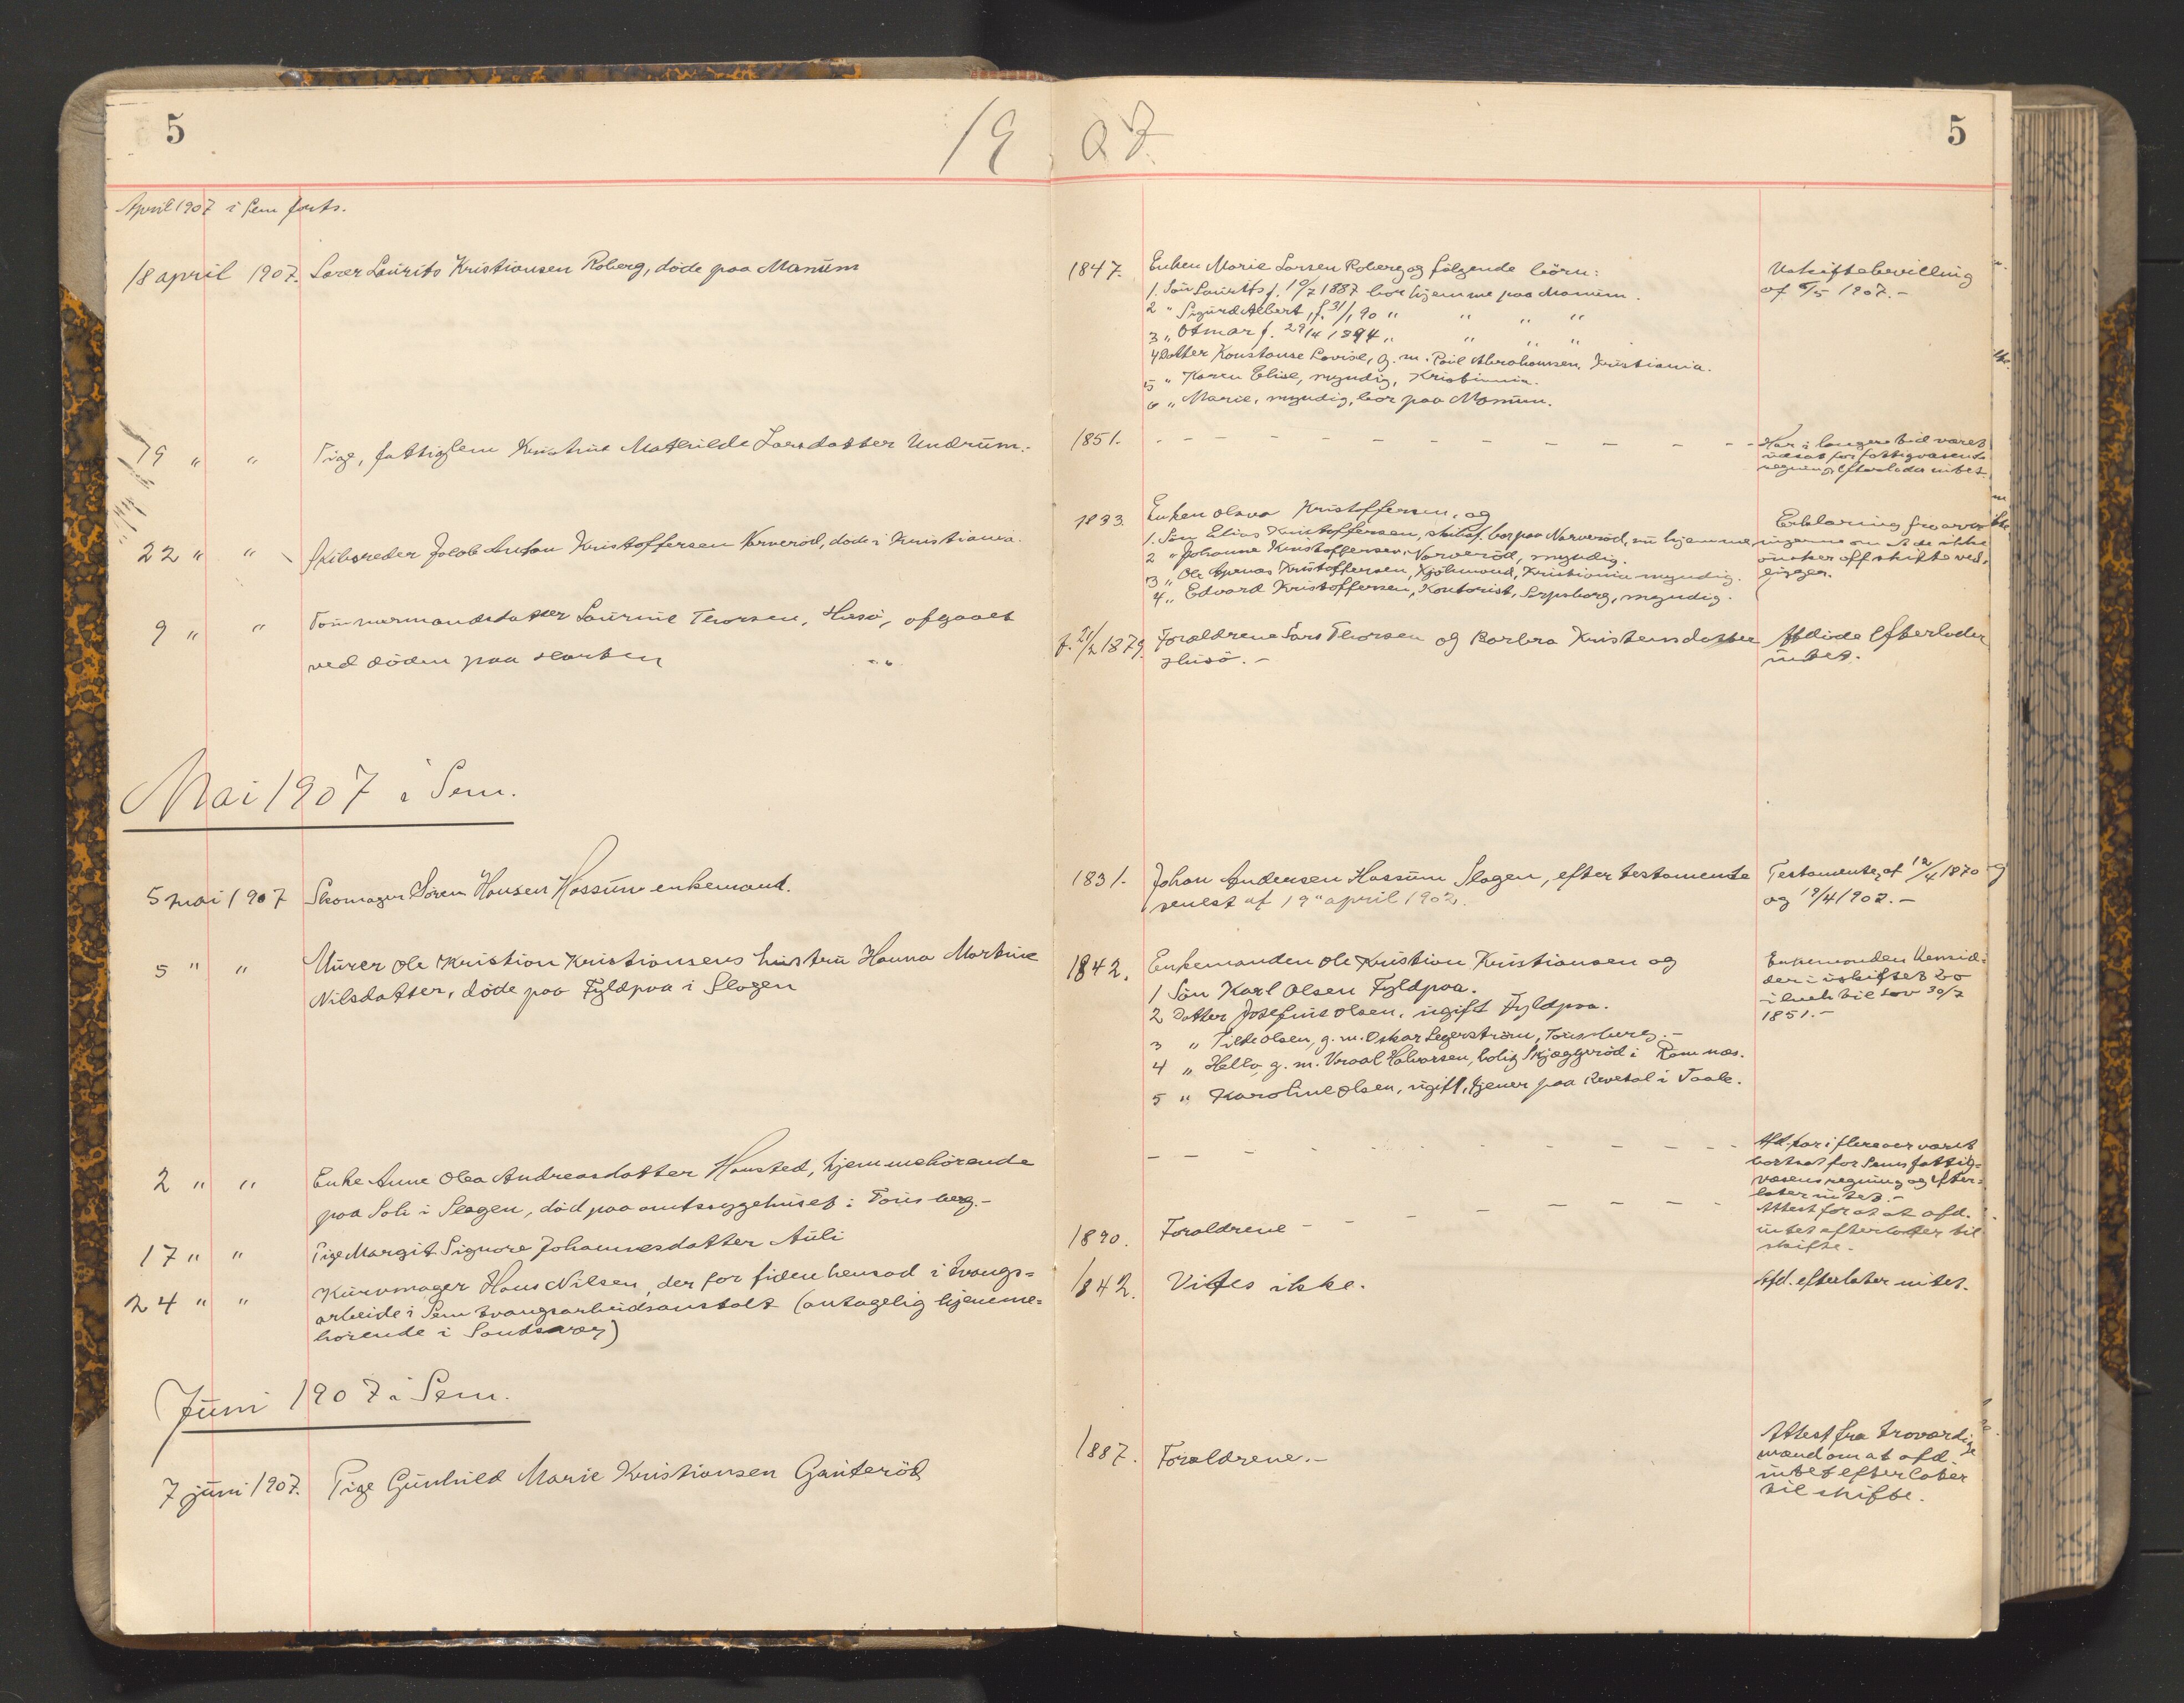 5
19 07.
5
April 1907 i Sem forts.
18 april 1907. Lars Laurits Kristiansen Roberg, døde paa Manum
1847. Enken Marie Larsen Roberg og følgende børn:
1. Søn Laurits f. 10/7 1887 bor hjemme paa Manum.
2 " Sigurd Albert, f. 31/1 90 " " " "
3 " Otmar f. 29/4 1894 " " " "
4 Datter Konstanse Lovise, g. m. Paul Abrahamsen, Kristiania.
5 " Karen Elise, myndig, Kristiania.
6 " Marie, myndig, bor paa Manum.
Uskiftebevilling
af 6/5 1907.-
19 " " Pige, fattiglem Kristine Mathilde Larsdatter Undrum.-
1851. - - - - - - - - - - - -
Har i længere tid været
udsat for fattigvæsenets
regning, efterlader intet.
22 " " Skibsreder Jakob Anton Kristoffersen Narverød, døde i Kristiania.
1833. Enken Olava Kristoffersen, og
1. Søn Elias Kristoffersen, skibsf. bor paa Narverød, nu hjemme
2 " Johanne Kristoffersen, Narverød, myndig.
3 " Ole Kristoffersen, Kjøbmand, Kristiania myndig.
4 " Edvard Kristoffersen, Kontorist, Sarpsborg, myndig.
Erklæring fra arv-
ingerne om at de ikke
ønsker off skifte ved-
ligger.
9 " " Tømmermandsdatter Laurine Thorsen, Husø, afgaaet
ved døden paa Horten
f. 21/2 1879. Forældrene Lars Thorsen og Barbra Kristensdatter
Husø.-
Afdøde efterlader
intet.
Mai 1907 i Sem.
5 mai 1907 Skomager Søren Hansen Hassum enkemand.
1831. Johan Andersen Hassum Slagen, efter testamente
senest af 19de april 1902.
Testamente af 12/4 1870
og 19/4 1902.-
5 " " Murer Ole Kristian Kristiansens hustru Hanna Martine
Nilsdatter, døde paa Fyldpaa i Slagen
1842. Enkemanden Ole Kristian Kristiansen og
1 Søn Karl Olsen Fyldpaa.
2 Datter Josefine Olsen, ugift Fyldpaa.
3 " Olsen, g. m. Oskar Legerstrøm, Tønsberg.-
4 " Hella, g. m. Vraal Halvorsen, bolig Skjæggerød i Ramnæs.
5 " Karoline Olsen, ugift, tjener paa Revetal i Vaale.
Enkemanden hensid-
der i uskiftet bo
i henh til lov 30/7
1851.-
2 " " Enke Anne Olea Andreasdatter Hansted, hjemmehørende
paa Soli i Slagen, død paa amtssygehuset i Tønsberg.-
- - - - - - - - - - -
Afd. har i flere aar været
bortsat for Sems fattig-
væsens regning og efter-
later intet.-
17 " " Pige Margit Signora Johannesdatter Auli
1890. Forældrene - - - - - - - -
Attest for at afd.
intet efterlater til
skifte.-
24 " " Kurvmager Hans Nilsen, der for tiden hensad i tvangs-
arbeide i Sem tvangsarbeidsanstalt (antagelig hjemme-
hørende i Sandsvær)
1842. Vites ikke.
Afd. efterlater intet.
Juni 1907 i Sem.
7 juni 1907. Pige Gunhild Marie Kristiansen Gauterød
1887. Forældrene.-
Attest fra troværdige
mænd om at afd.
intet efterlater
til skifte.